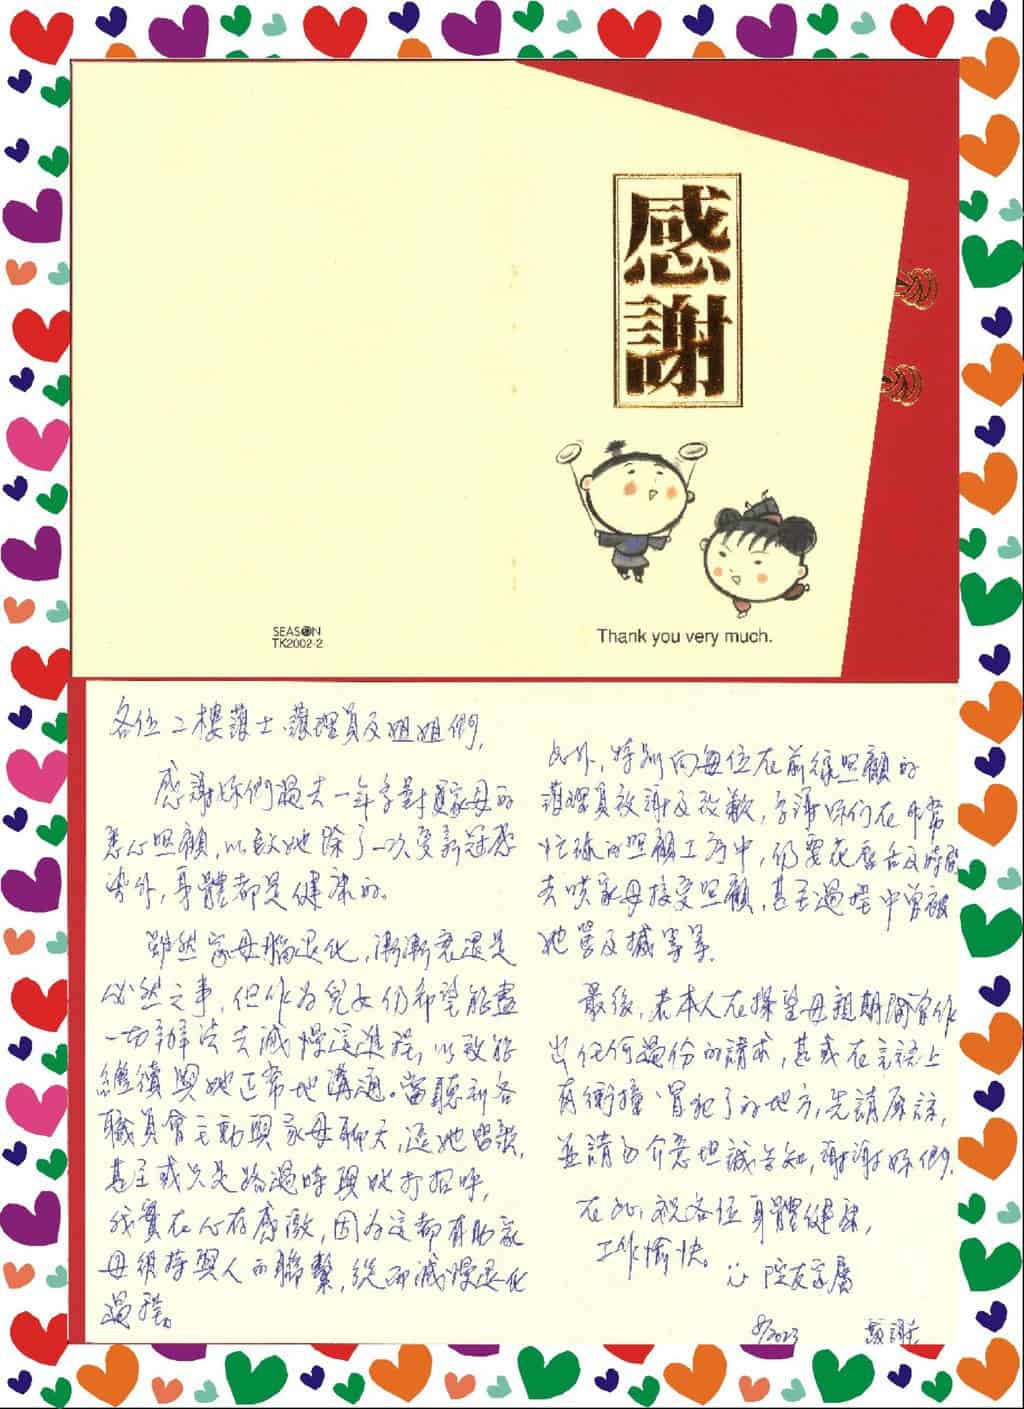 感
謝
SEASON
TK2002-2
Thank you very much.
各位二樓護士、護理員及姐姐們,
感謝妳們過去一年多對家母的
悉心照顧,以致她除了一次受新冠感
染外,身體都是健康的。
雖然家母腦退化,漸漸衰退是
必然之事,但作為兒女仍希望能盡
一切辦法去減慢這進程,以致能
繼續與她正常地溝通。當聽到各
職員會主動與家母聊天,逗她唱歌,
甚至或只是路過時與她打招呼,
我實在心存感激,因為這都有助家
母維持與人的聯繫,從而減慢退化
過程。
此外,特別向每位在前線照顧的
護理員致謝及致歉,多謝妳們在非常
忙碌的照顧工序中,仍要花唇舌及時間
去哄家母接受照顧,甚至過程中曾被
她罵及撼等等.
最後,若本人在探望母親期間曾作
出任何過份的請求,甚或在言語上
有衝撞、冒犯了的地方,先請原諒,
並請不介意坦誠告知,謝謝妳們.
在此,祝各位身體健康,
工作愉快。
院友家屬
8/2023
謝上